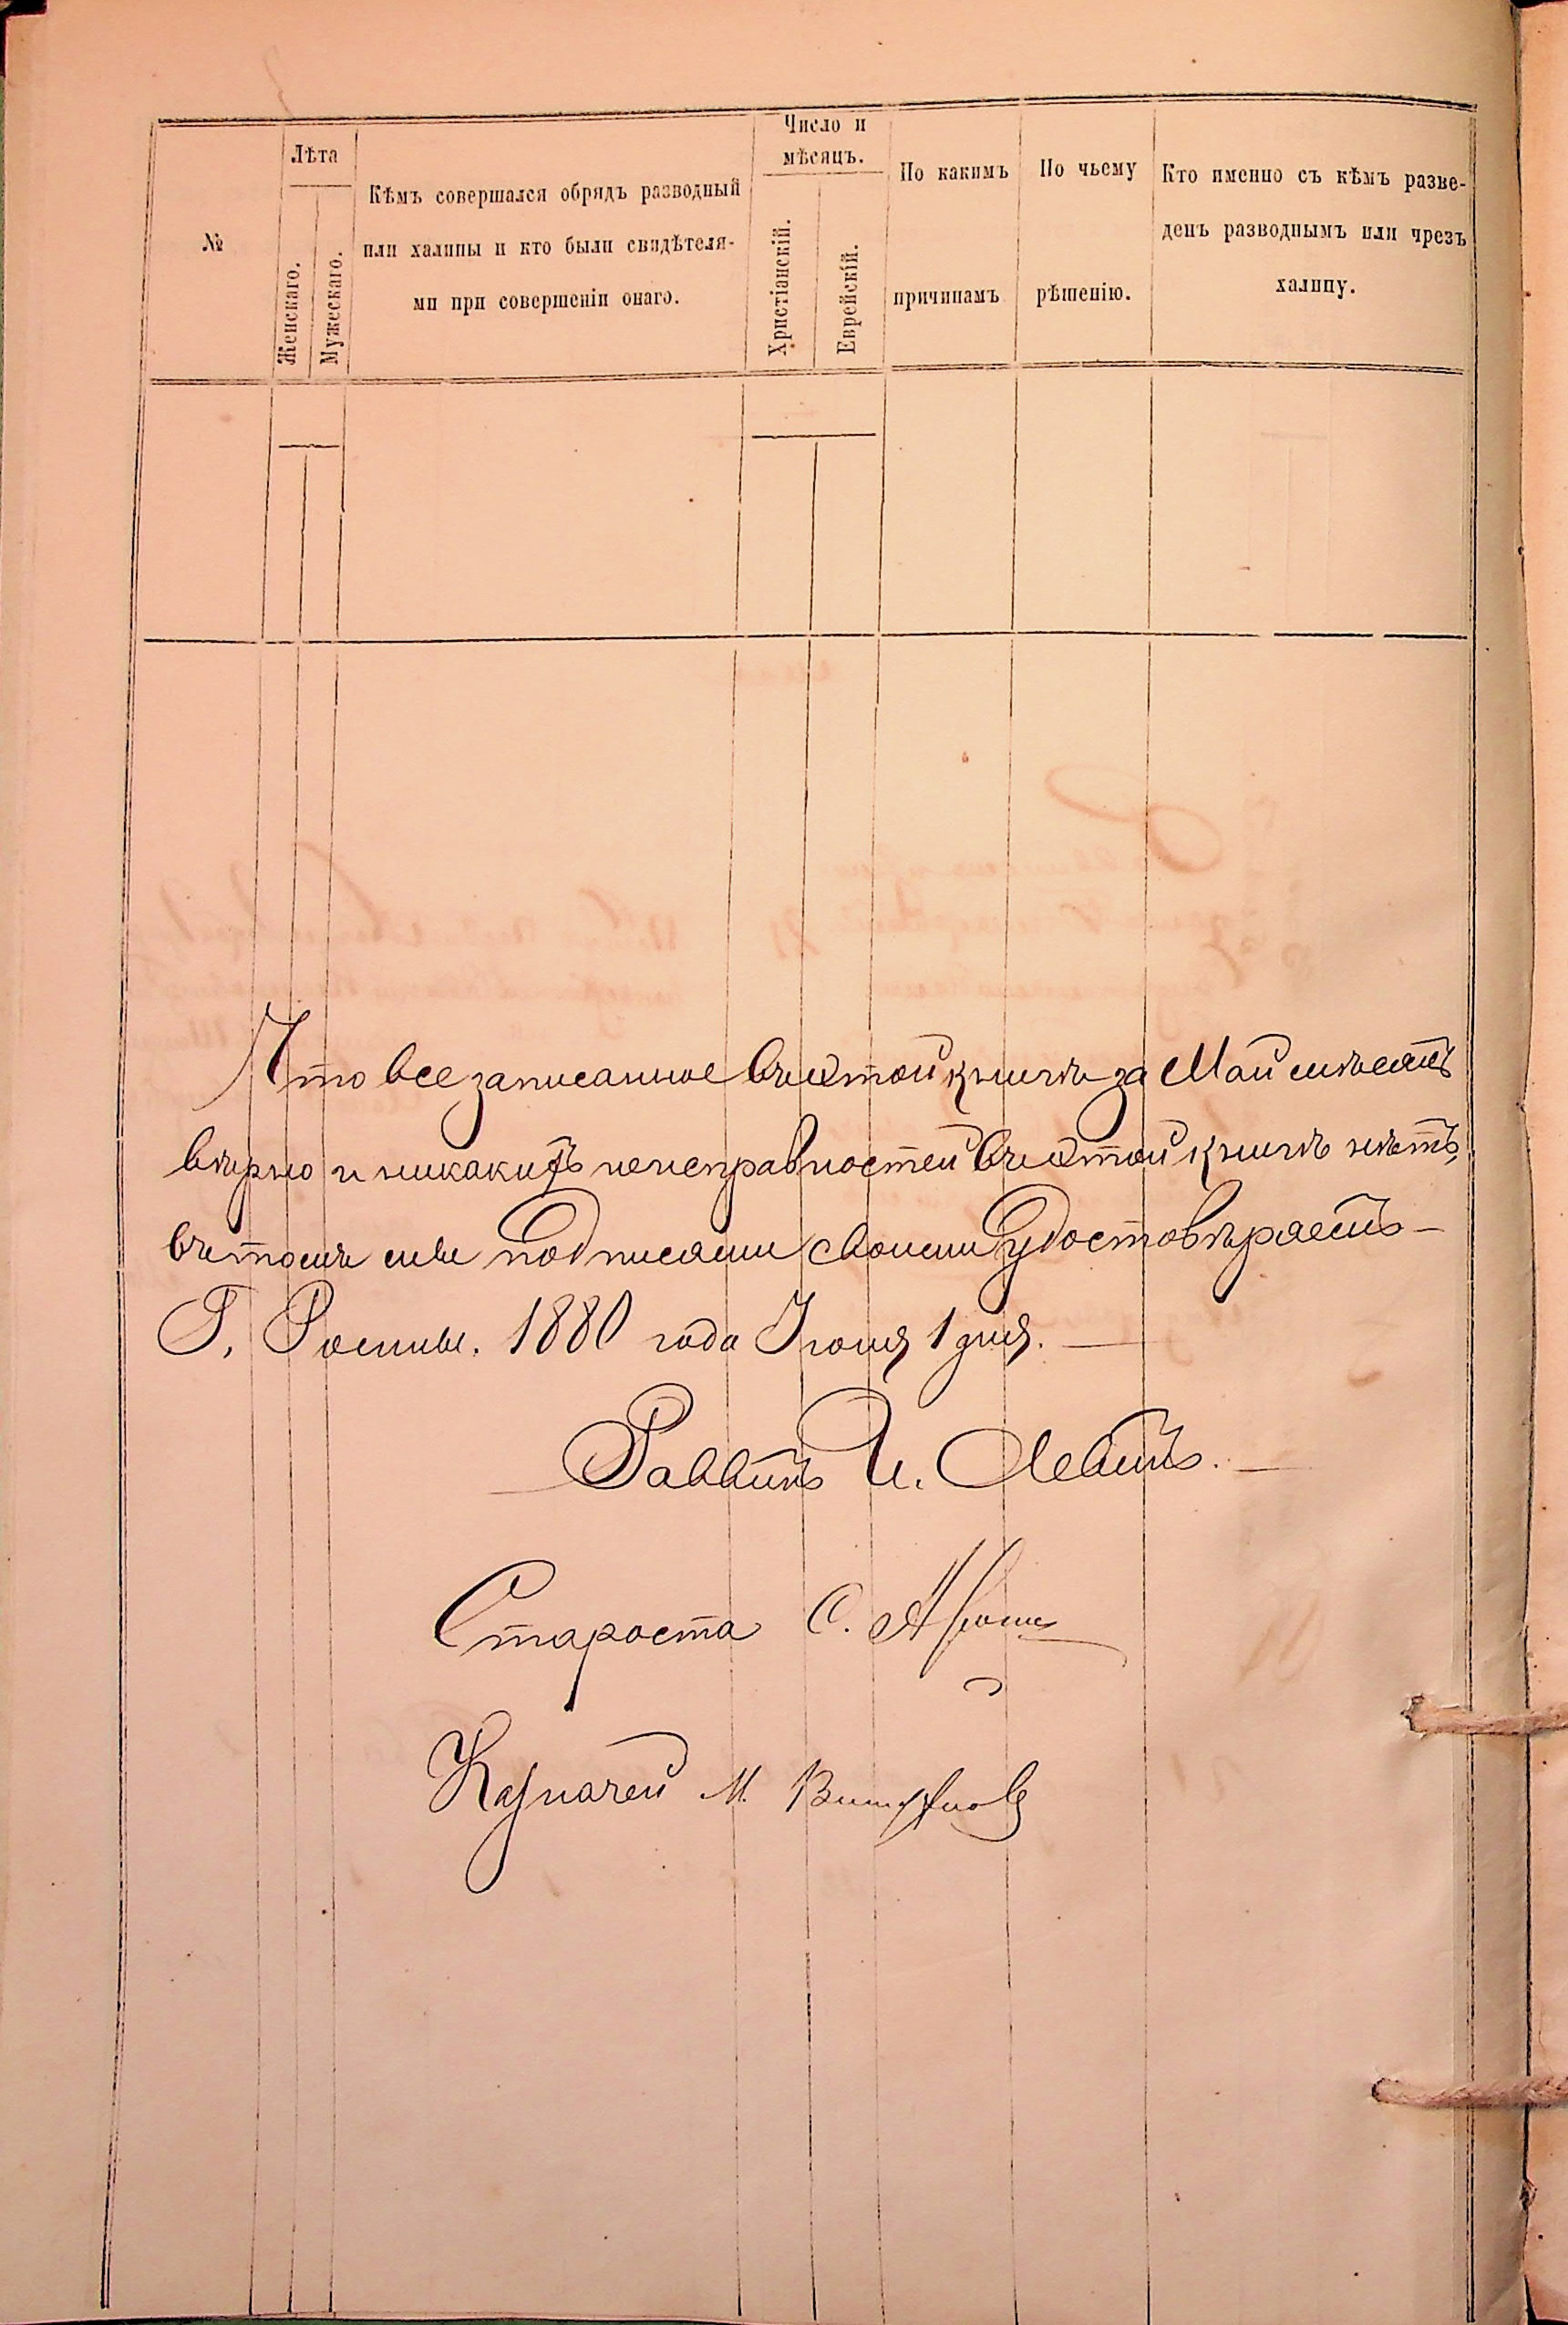 №
Лѣта
Женскаго.
Мужескаго.
Кѣмъ совершался обрядъ разводный
или халицы и кто были свидѣтеля-
ми при совершеніи онаго.
Число и
мѣсяцъ.
Христіанскій.
Еврейскій.
По какимъ
причинамъ
По чьему
рѣшенію.
Кто именно съ кѣмъ разве-
денъ разводнымъ или чрезъ
халицу.
Что все записанное въ этой книгѣ за Май мѣсяцъ
вѣрно и никакихъ неисправностей въ этой книгѣ нѣтъ,
въ томъ мы подписями своими удостовѣряемъ —
Г. 1880 года Іюня 1 дня. —
Раввинъ И. Левинъ. —
Староста С.
Казначей М.